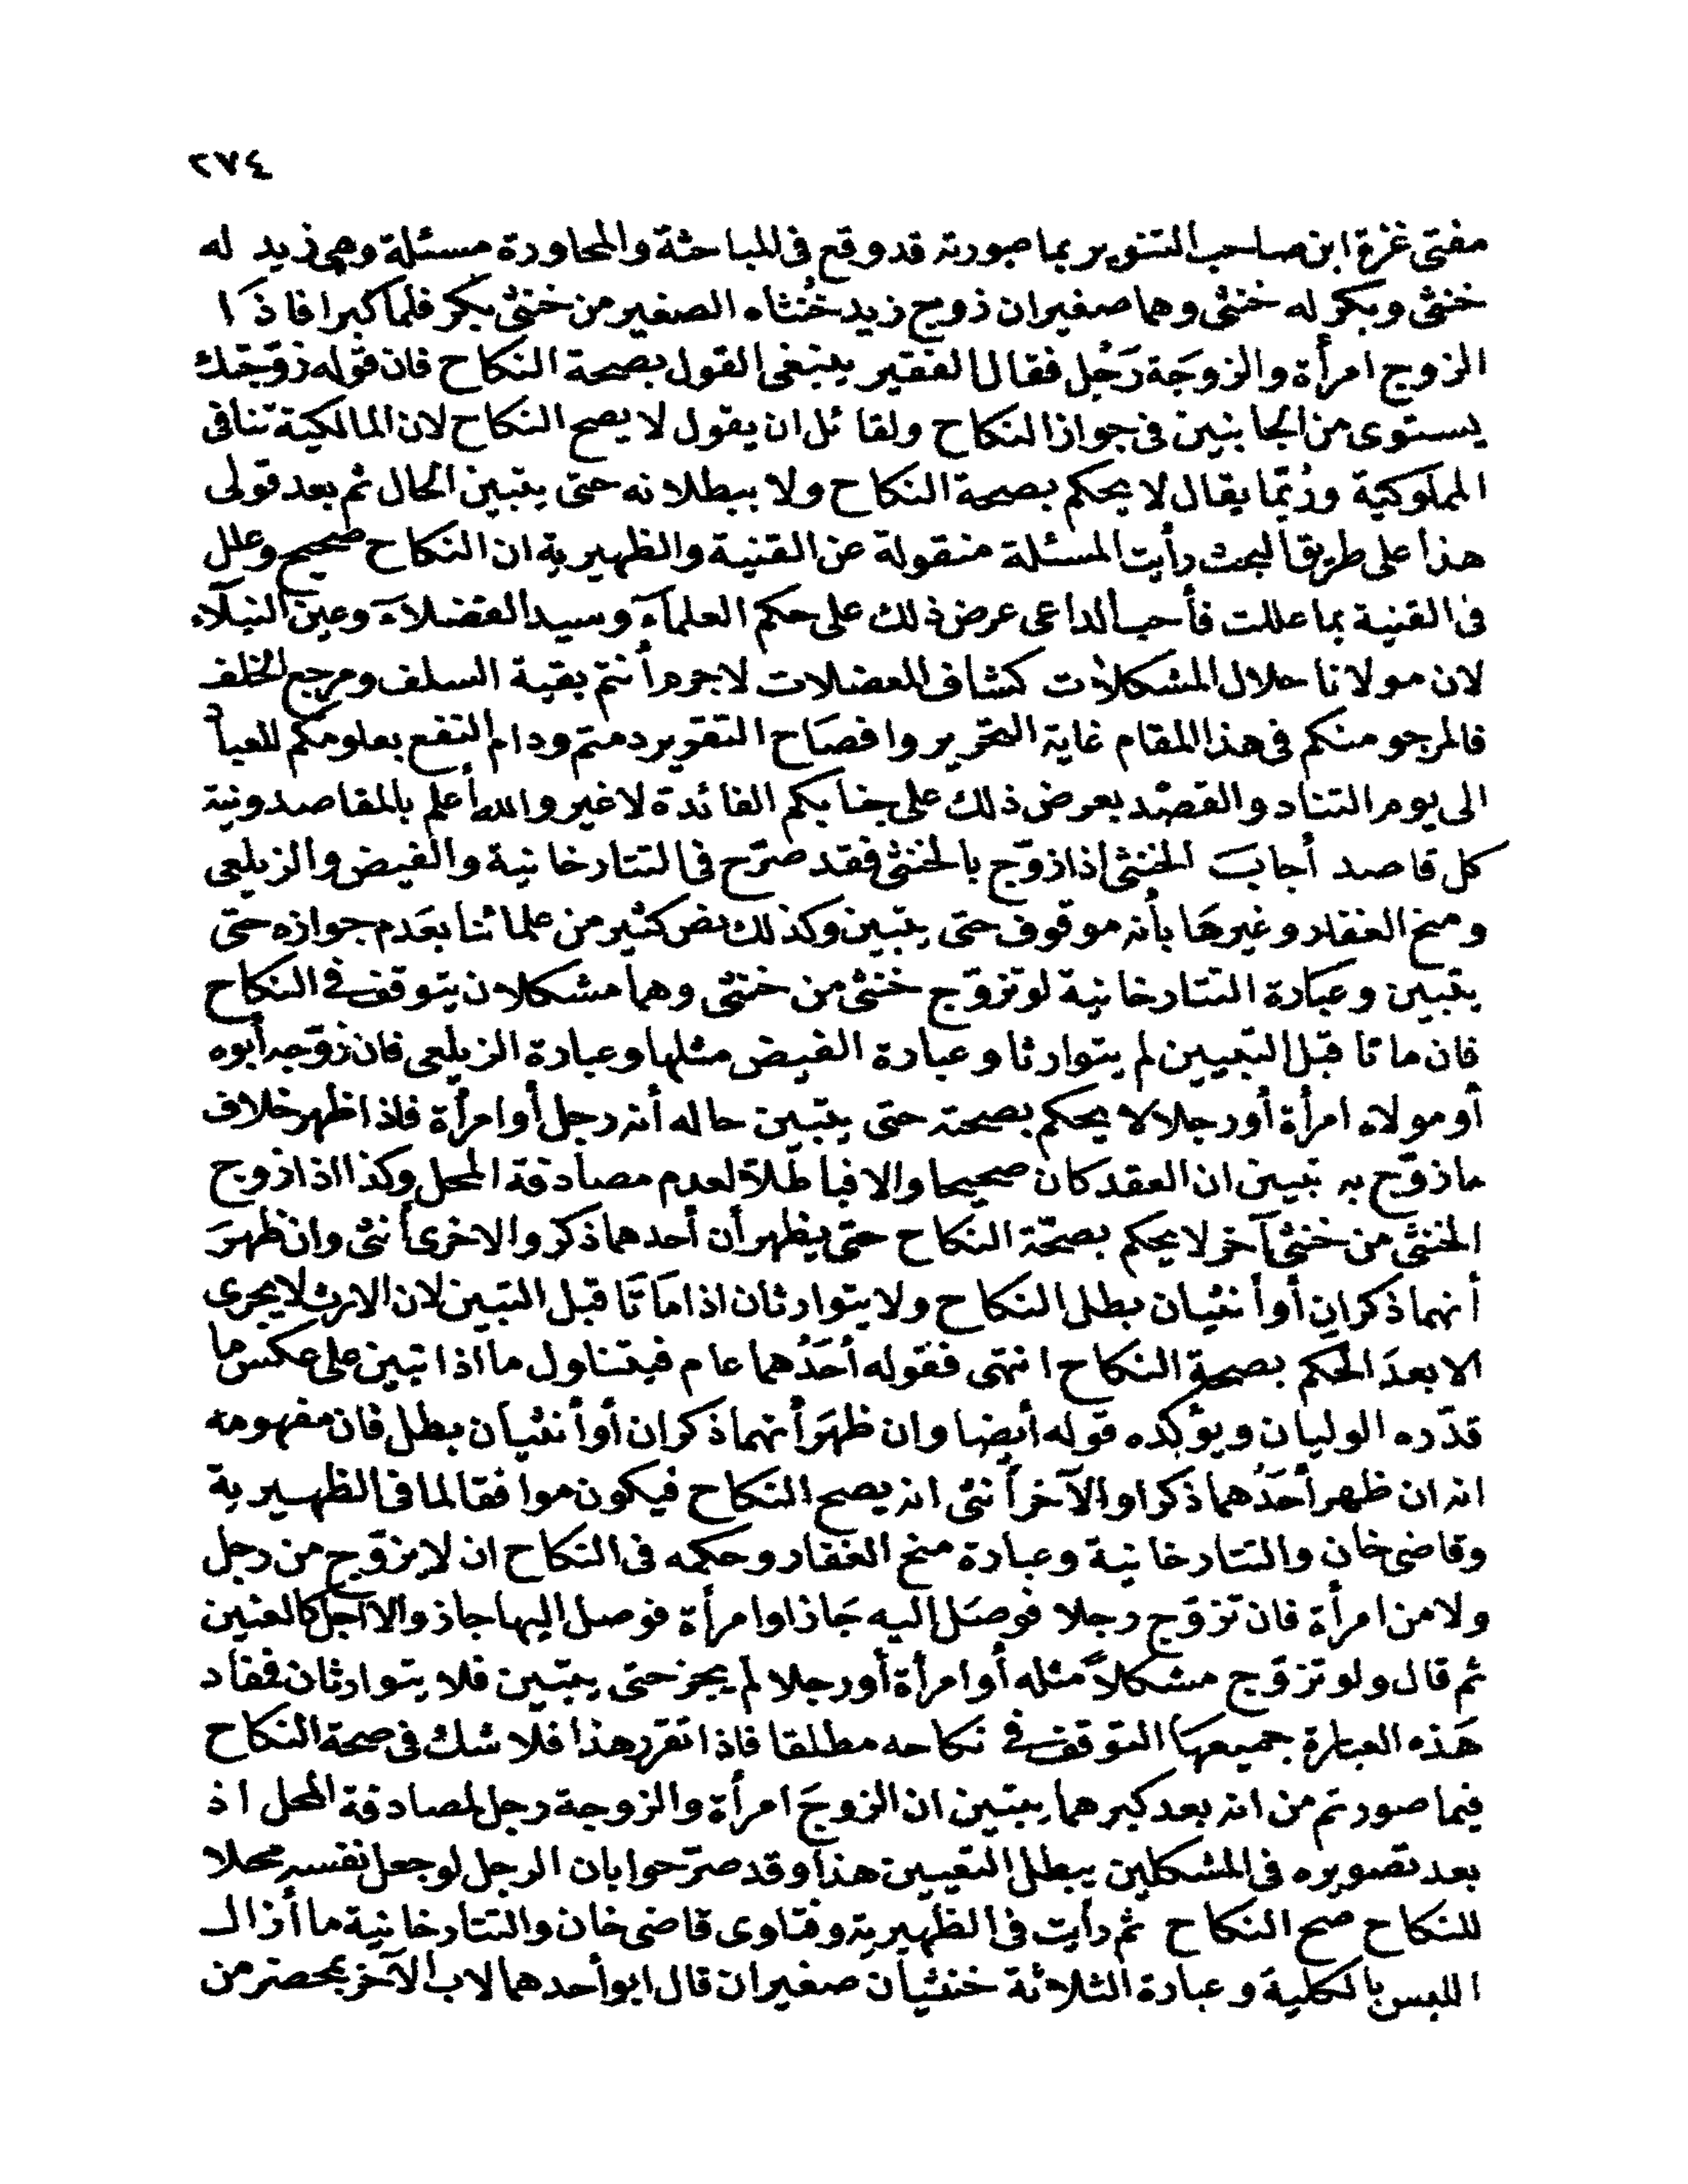 ٢٧٤
مفتى غزة ابن صاحب التنوير بما صورته قد وقع فى المباحثة والمحاورة مسئلة وهى زيد له
خنثى وبكر له خنثى وهما صغيران زوج زيد خُنثاه الصغير من خنثى بكر فلما كبرا فاذا
الزوج امرأة والزوجَة رَجُل فقال الفقير ينبغى القول بصحة النكاح فان قوله زوّجتك
يستوى من الجانبين فى جواز النكاح ولقائل ان يقول لا يصح النكاح لان المالكية تنافى
المملوكية ورُبّما يقال لا يحكم بصحة النكاح ولا ببطلانه حتى يتبين الحال ثم بعد قولى
هذا على طريق البحث رأيت المسئلة منقولة عن القنية والظهيرية ان النكاح صحيح وعلل
فى القنية بما عللت فأحب الداعى عرض ذلك على حكم العلمآء وسيد الفضلآء وعين النبلآء
لان مولانا حلال المشكلات كشاف المعضلات لاجرم أنتم بقية السلف ومرجع الخلف
فالمرجو منكم فى هذا المقام غاية التحرير وافصَاح التقرير دمتم ودام النفع بعلومكم للعباد
الى يوم التناد والقصْد بعرض ذلك على جنابكم الفائدة لاغير والله أعلم بالمقاصد ونية
كل قاصد أجابَ الخنثى اذا زوّج بالخنثى فقد صرّح فى التتارخانية والفيض والزيلعى
ومنح الغفار وغيرهَا بأنه موقوف حتى يتبين وكذلك نص كثير من علمائنا بعَدم جوازه حتى
يتبين وعبَارة التتارخانية لو تزوّج خنثى من خنثى وهما مشكلان يتوقف فى النكاح
فان ماتا قبل التبيين لم يتوارثا وعبارة الفيض مثلها وعبارة الزيلعى فان زوّجه أبوه
أو مولاه امرأة أو رجلا لا يحكم بصحته حتى يتبين حاله أنه رجل أو امرأة فاذا ظهر خلاف
ما زوّج به تبين ان العقد كان صحيحا والا فباطلاً لعدم مصادفة المحل وكذا اذا زوج
الخنثى من خنثى آخر لا يحكم بصحّة النكاح حتى يظهر أن أحدهما ذكر والاخرى أنثى وان ظهرَ
أنهما ذكران أو أنثيان بطل النكاح ولا يتوارثان اذا مَاتَا قبل التبين لان الارث لا يجرى
الا بعدَ الحكم بصحة النكاح انتهى فقوله أحَدُهما عام فيتناول ما اذا تبين على عكس ما
قدّره الوليان ويؤكده قوله أيضا وان ظهَر أنهما ذكران أو أنثيان بطل فان مفهومه
انه ان ظهر أحَدُهما ذكرا والآخر أنثى انه يصح النكاح فيكون موافقا لما فى الظهيرية
وقاضى خان والتتارخانية وعبارة منح الغفار وحكمه فى النكاح ان لا يزوّج من رجل
ولا من امرأة فان تزوّج رجلا فوصَل اليه جَاز او امرأة فوصل اليها جاز والا أجل كالعنين
ثم قال ولو تزوّج مشكلاً مثله أو امرأة أو رجلا لم يجز حتى يتبين فلا يتوارثان فمفاد
هَذه العبارة جميعهَا التوقف فى نكاحه مطلقا فاذا تقرر هذا فلا شك فى صحة النكاح
فيما صورتم من انه بعد كبرهما يتبين ان الزوجَ امرأة والزوجة رجل لمصادفة المحل اذ
بعد تصويره فى المشكلين يبطل التعيين هذا وقد صرّحوا بان الرجل لو جعل نفسه محلا
للنكاح صح النكاح ثم رأيت فى الظهيرية وفتاوى قاضى خان والتتارخانية ما أزال
اللبس بالكلية وعبارة الثلاثة خنثيان صغيران قال ابو أحدهما لاب الآخر بمحضر من